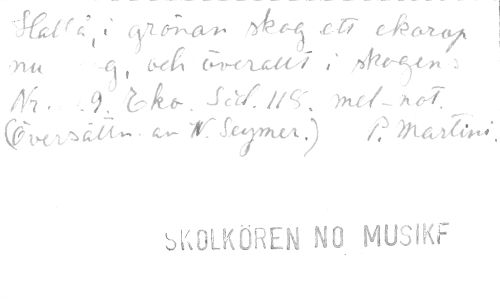 Hallå, i grönan skog ett ekorop
nu g, och överallt i skogens
Nr. 9. Eko. Sid. 118. mel-not.
(Översättn. av W. Seymer.) P. Martini.
SKOLKÖREN NO MUSIKF